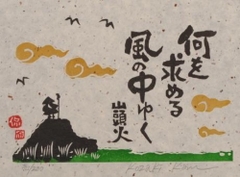 何を
求める
風の中ゆく
山頭火